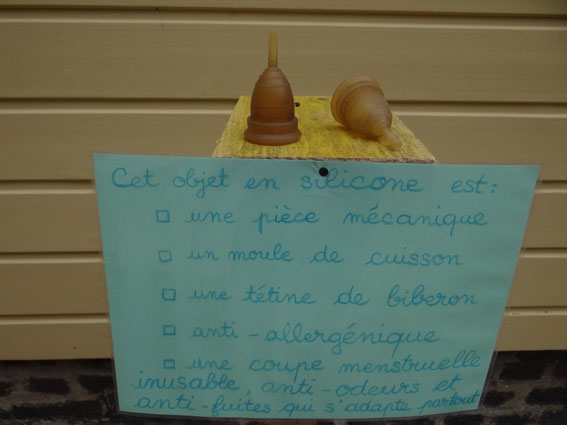 Cet objet en silicone est:
une pièce mécanique
un moule de cuisson
une tétine de biberon
anti-allergénique
une coupe menstruelle
inusable, anti-odeurs et
anti-fuites qui s'adapte partout